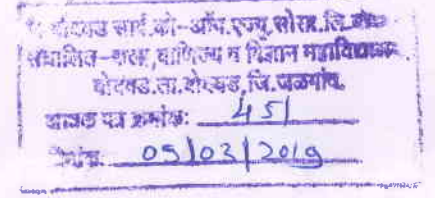 दि बोदवड सार्व.को-ऑप.एज्यु.सोसा.लि.बोद
संचालित-कला,वाणिज्य व विज्ञान महाविद्यालय
बोदवड.ता.बोदवड,जि.जळगांव.
जावक पत्र क्रमांक: 451
दिनांक. 05/03/2019